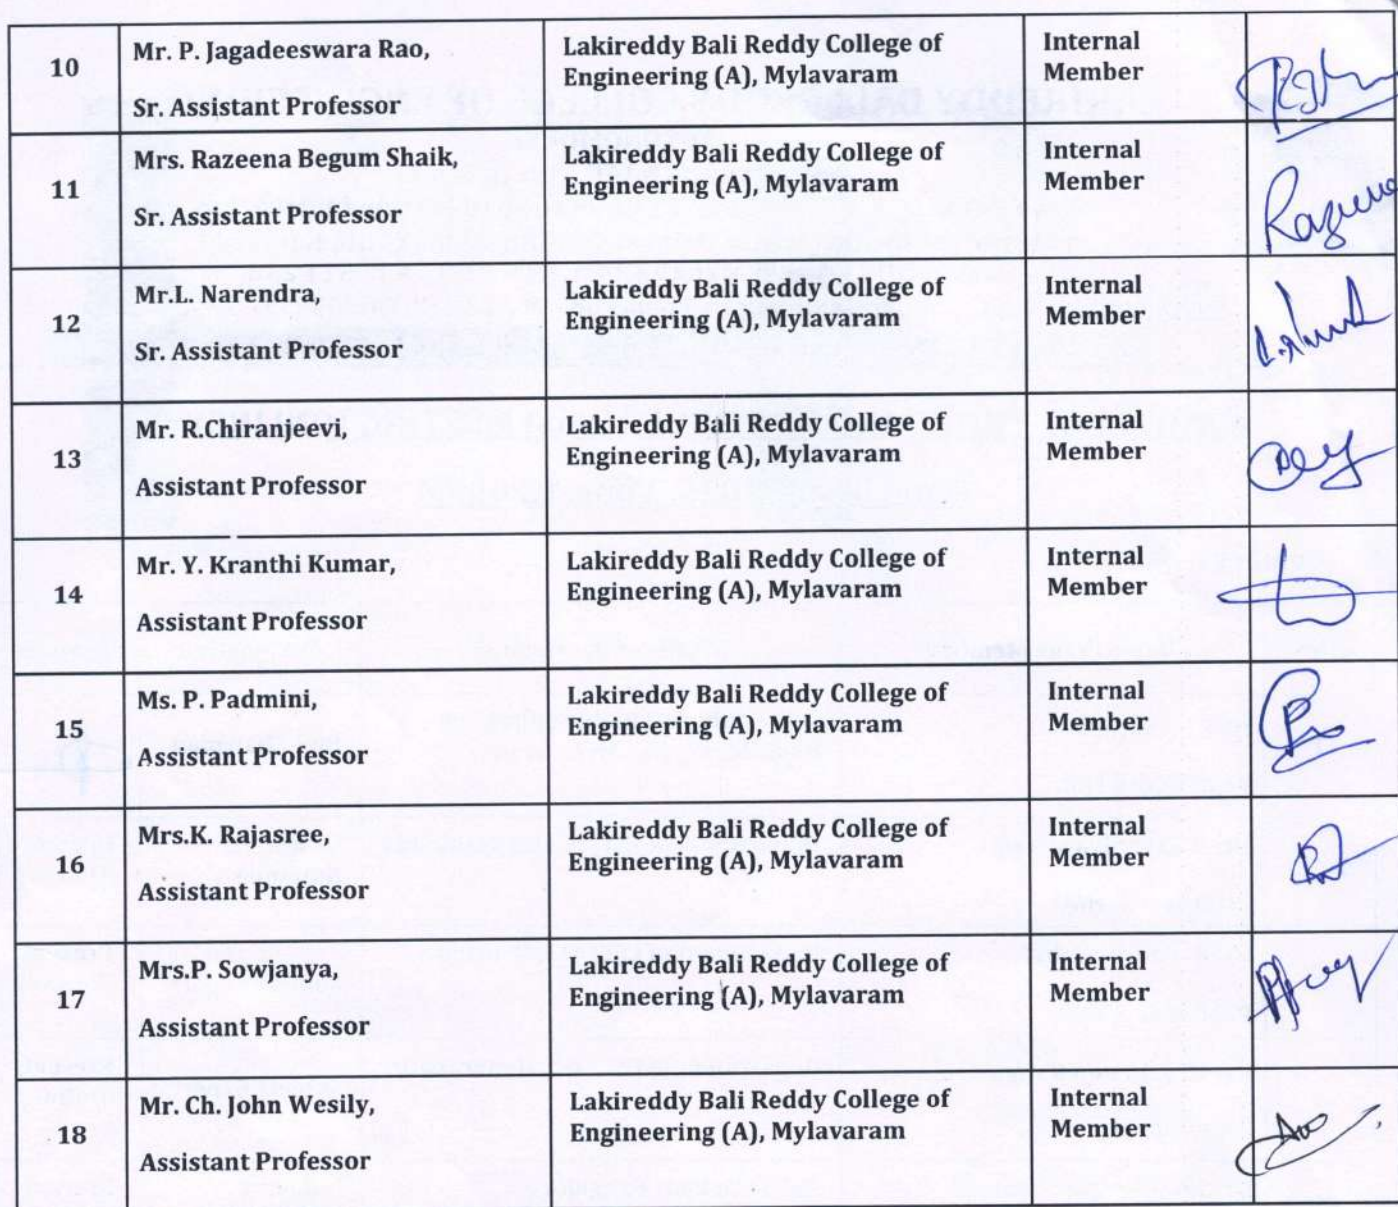 10
Mr. P. Jagadeeswara Rao,
Sr. Assistant Professor
Lakireddy Bali Reddy College of
Engineering (A), Mylavaram
Internal
Member
11
Mrs. Razeena Begum Shaik,
Sr. Assistant Professor
Lakireddy Bali Reddy College of
Engineering (A), Mylavaram
Internal
Member
12
Mr.L. Narendra,
Sr. Assistant Professor
Lakireddy Bali Reddy College of
Engineering (A), Mylavaram
Internal
Member
13
Mr. R.Chiranjeevi,
Assistant Professor
Lakireddy Bali Reddy College of
Engineering (A), Mylavaram
Internal
Member
14
Mr. Y. Kranthi Kumar,
Assistant Professor
Lakireddy Bali Reddy College of
Engineering (A), Mylavaram
Internal
Member
15
Ms. P. Padmini,
Assistant Professor
Lakireddy Bali Reddy College of
Engineering (A), Mylavaram
Internal
Member
16
Mrs.K. Rajasree,
Assistant Professor
Lakireddy Bali Reddy College of
Engineering (A), Mylavaram
Internal
Member
17
Mrs.P. Sowjanya,
Assistant Professor
Lakireddy Bali Reddy College of
Engineering (A), Mylavaram
Internal
Member
18
Mr. Ch. John Wesily,
Assistant Professor
Lakireddy Bali Reddy College of
Engineering (A), Mylavaram
Internal
Member